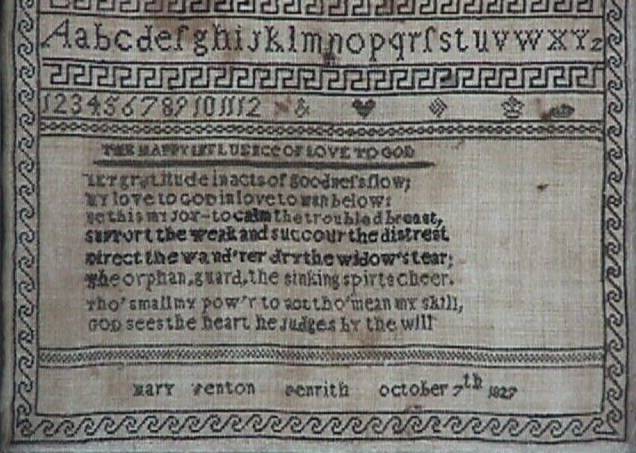 Aabcdefghijklmnopqrſstuvwxyz
123456789101112 &
THE HAPPY INFLUENCE OF LOVE TO GOD
LET gratitude in acts of goodneſs flow;
MY love to GOD in love to man below:
Be this my Joy-to calm the troubled breast,
Support the weak and succour the distrest
Direct the wand'rer dry the widow's tear;
The orphan, guard, the sinking spirts cheer.
Tho' small my pow'r to act tho' mean my skill,
GOD sees the heart he Judges by the will
Mary Fenton Penrith October 7th 1827